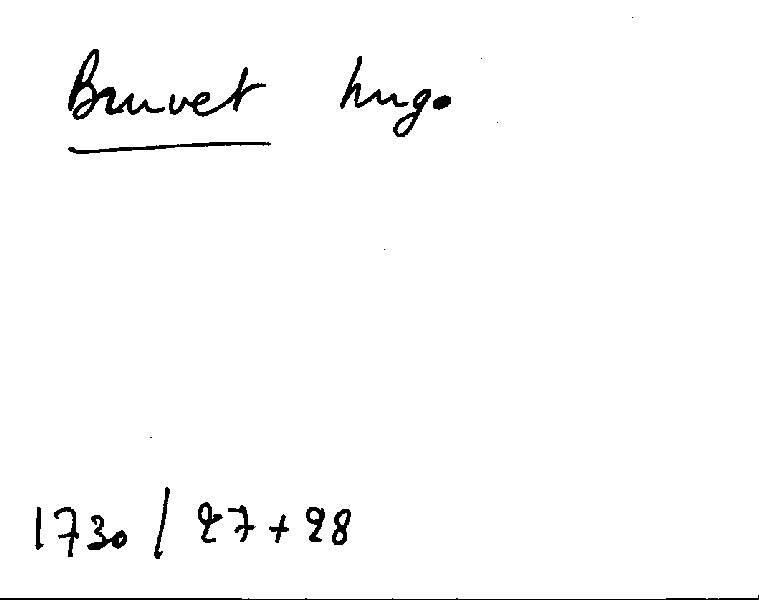 Bruvet hugo
1730 / 27 + 28